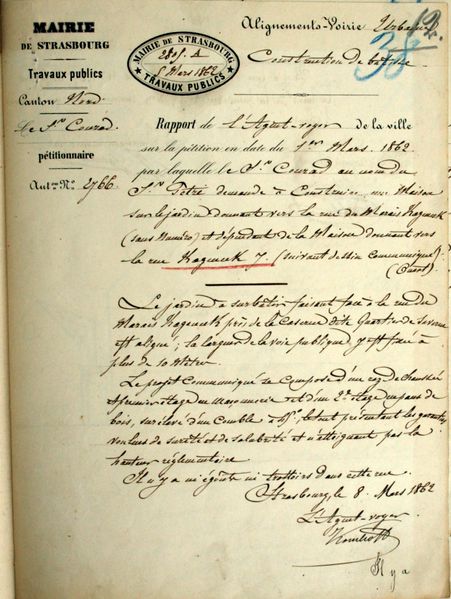 MAIRIE
DE STRASBOURG
Travaux publics
Canton Nord
Le Sr Conrad
pétitionnaire
Auton No. 2766
MAIRIE DE STRASBOURG
5 Mars 1862
TRAVAUX PUBLICS
Alignements-Voirie Urbaine
Construction de bâtisse
Rapport de l'Agent-voyer de la ville
sur la pétition en date du 1er Mars 1862
par laquelle le Sr Conrad au nom du
Sr Pêtre demande à Construire une Maison
sur le jardin donnant vers la rue du Marais Kageneck
(sans Numéro) et dépendant de la Maison donnant vers
la rue Kageneck 7. (suivant dessin communiqué)
Le jardin à surbâtir faisant face à la rue du
Marais Kageneck près de la Caserne dite Quartier de Saverne
est aligné; la largeur de la voie publique y est fixée à
plus de 10 Mètres
Le projet Communiqué se compose d'un rez de chaussée
et premier étage en maçonnerie et d'un 2e étage en pans de
bois, surélevé d'un Comble à 45°, le tout présentant les garanties
voulues de sureté et de salubrité et n'atteignant pas la
hauteur réglementaire
Il n'y a ni égoûts ni trottoirs dans cette rue.
Strasbourg, le 8. Mars 1862
L'Agent-voyer
Il y a